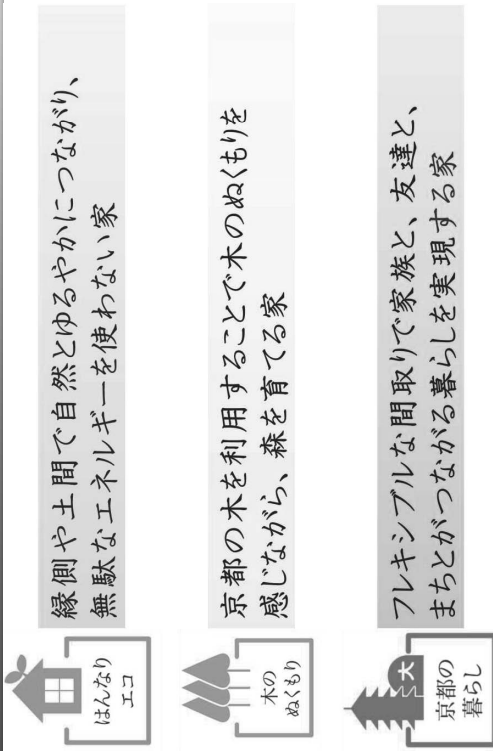 はんなり
エコ
縁側や土間で自然とゆるやかにつながり、
無駄なエネルギーを使わない家
木の
ぬくもり
京都の木を利用することで木のぬくもりを
感じながら、森を育てる家
大
京都の
暮らし
フレキシブルな間取りで家族と、友達と、
まちとがつながる暮らしを実現する家